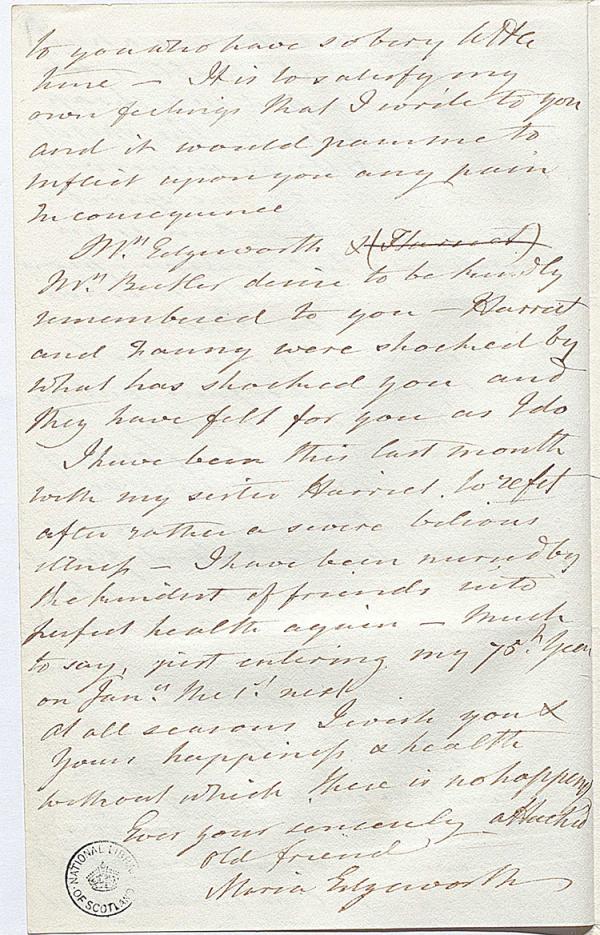 to you who have so very little
time — It is to satisfy my
own feelings that I write to you
and it would pain me to
inflict upon you any pain
in consequence
Mrs. Edgeworth & (Harriet)
Mrs. Butler desire to be kindly
remembered to you — Harriet
and Fanny were shocked by
what has shocked you and
they have felt for you as I do
I have been this last month
with my sister Harriet to refit
after rather a severe bilious
illness — I have been nursed by
the kindest of friends into
perfect health again — Much
to say, just entering my 75th Year
on Jany. the 1st next
At all seasons I wish you &
Yours happiness & health
without which there is no happiness
Ever your sincerely attached
old friend
Maria Edgeworth
NATIONAL LIBRARY
OF SCOTLAND